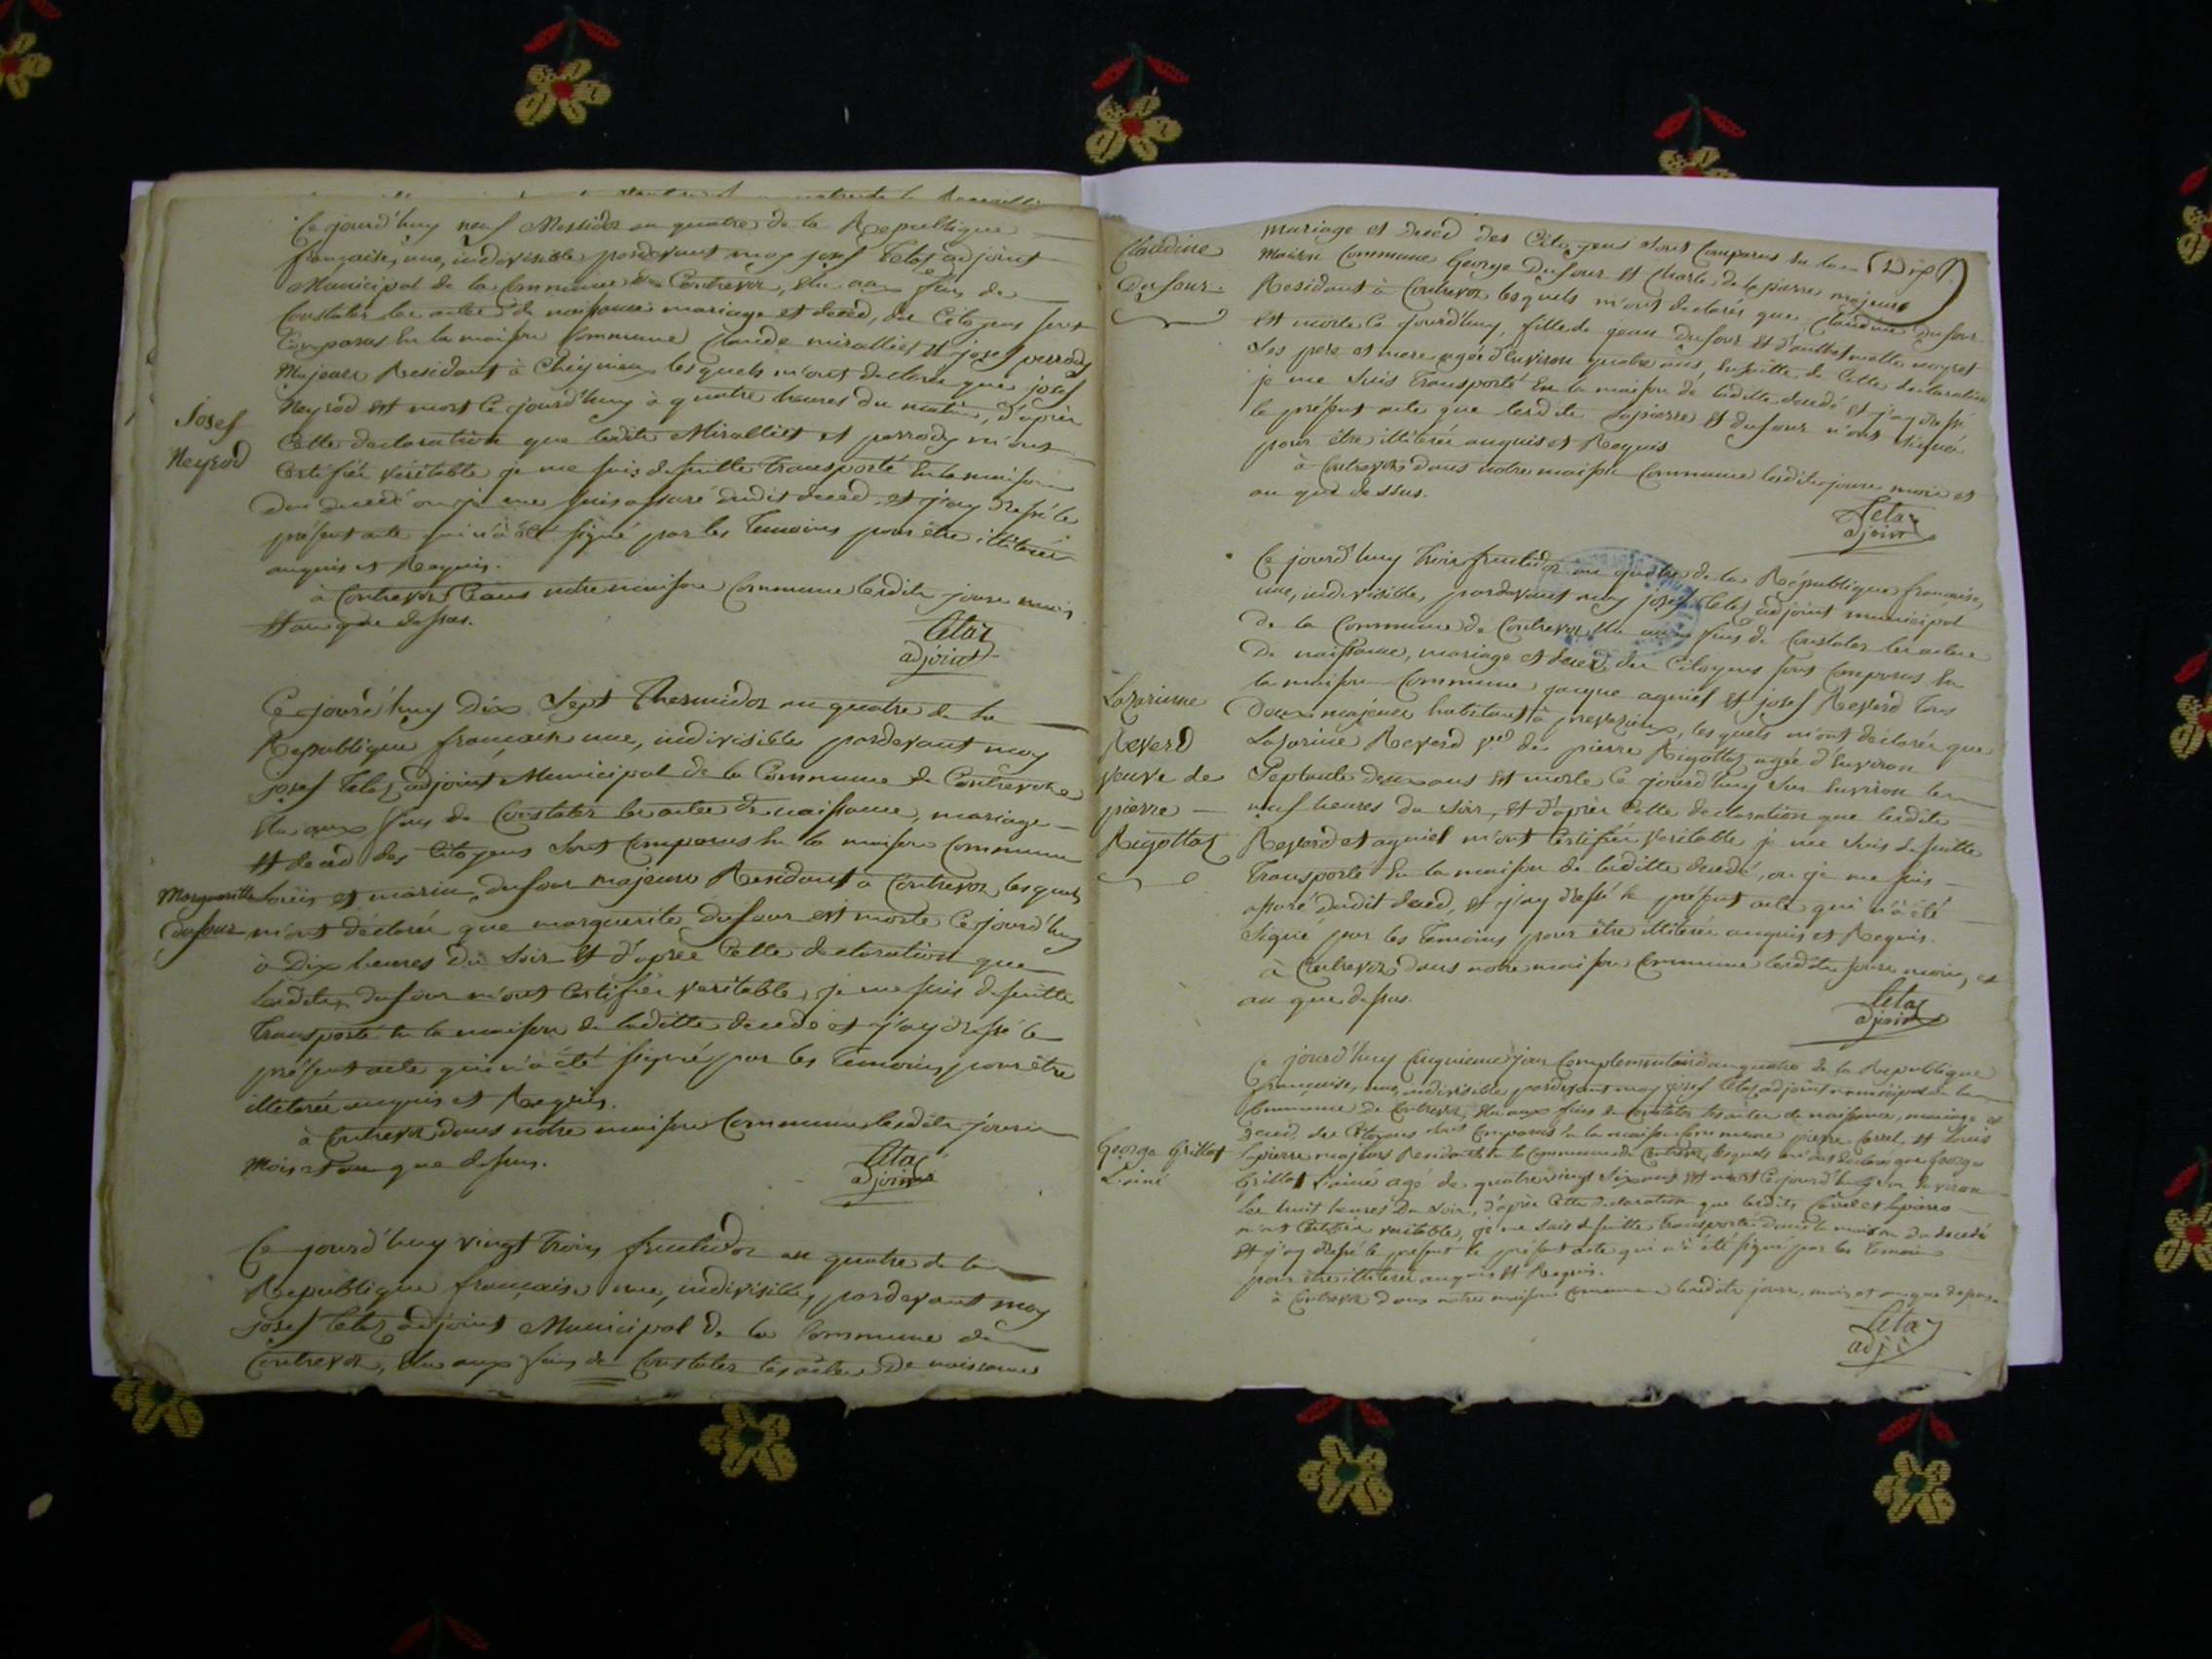 Ce jourd'huy neuf Messidor an quatre de la Republique
française, une, indivisible pardevant moy josef Letaz adjoint
Municipal de la Commune de Contrevoz, élu aux fins de
Constater les actes de naissance mariage et deced, des Citoyens sont
Comparus En la maison Commune Claude miralliet Et josef perrody
Majeurs Residant à Cheignieu lesquels m'ont declarés que josef
Neyrod est mort Ce jourd'huy à quatre heures du matin, d'après
Josef
Neyrod
Cette declaration que lesdits Miralliet et perrody m'ont
Certifiés véritable je me suis desuitte Transporté En la maison
dudit decedé ou je me suis assuré dudit deced, et j'ay dressé le
présent acte qui n'à été signé par les Temoins pour être illiterés
enquis et Requis.
à Contrevoz dans notre maison Commune lesdits jours mois
Et an que dessus.
Letaz
adjoint
Ce jourd'huy Dix Sept Thermidor an quatre de la
Republique française une, indivisible pardevant moy
josef Letaz adjoint Municipal de la Commune de Contrevoz
élu aux fins de Constater les actes de naissance, mariage
Et deced des Citoyens sont Comparus En la maison Commune
Marguerite
dufour
Loüis et marin dufour majeurs Residant à Contrevoz lesquels
m'ont déclarés que marguerite dufour est morte Ce jourd'huy
à Dix heures du Soir Et d'après Cette declaration que
lesdits dufour m'ont Certifiés veritable, je me suis desuitte
Transporté En la maison de laditte decedé et j'ay dressé le
présent acte qui n'à été signé par les Temoins, pour être
illiterés enquis et Requis.
à Contrevoz dans notre maison Commune lesdits jours
Mois et an que dessus.
Letaz
adjoint
Ce jourd'huy vingt trois fructidor an quatre de la
Republique française une, indivisible, pardevant moy
josef Letaz adjoint Municipal de la Commune de
Contrevoz, élu aux fins de Constater les actes De naissance
Claudine
Dufour.
mariage et deced des Citoyens sont Comparus En la (Dix)
Maison Commune George Dufour Et Charle de lapierre majeurs
Residant à Contrevoz lesquels m'ont declarés que Claudine Dufour
Est morte Ce jourd'huy, fille de jean Dufour Et d'anthelmette neyret
Ses pere et mere agée d'Environ quatre ans, Ensuitte de Cette declaration
je me suis Transporté En la maison de laditte decedé et j'ay dressé
le présent acte que lesdits Lapierre Et dufour n'ont signés
pour être illiterés enquis et Requis
à Contrevoz dans notre maison Commune lesdits jours mois et
an que dessus.
Letaz
adjoint
Ce jourd'huy Trois fructidor an quatre de la République française,
une, indivisible, pardevant moy josef Letaz adjoint municipal
De la Commune de Contrevoz élu aux fins de Constater les actes
De naissance, mariage et deced, des Citoyens sont Comparus En
la maison Commune jacque agniel Et josef Reverd Tous
Lazarinne
Reverd
veuve de
pierre
Rigottaz
Deux majeurs habitant à preveyzieux, lesquels m'ont déclarés que
Lazarine Reverd v.e de pierre Rigottaz agée d'Environ
Septante deux ans Est morte Ce jourd'huy Sur Environ les
neuf heures du soir, Et d'après Cette declaration que lesdits
Reverd et agniel m'ont Certifiés veritable je me suis desuitte
Transporté En la maison de laditte decedé, ou je me suis
assuré dudit deced, Et j'ay dressé le présent acte qui n'à été
signé par les Temoins pour être illiterés enquis et Requis.
à Contrevoz dans notre maison Commune lesdits jours mois, et
an que dessus.
Letaz
adjoint
Ce jourd'huy Cinquieme jour Complementaire an quatre de la Republique
française, une, indivisible pardevant moy josef Letaz adjoint municipal de la
Commune de Contrevoz, élu aux fins de Constater les actes de naissance, mariage et
deced, des Citoyens sont Comparus En la maison Commune pierre Carrel Et Louis
George Grillot
L'ainé
Lapierre majeurs Residants En la Commune de Contrevoz, lesquels m'ont declaré que George
Grillot L'ainé agé de quatrevingt Six ans Est mort Ce jourd'huy Sur Environ
les huit heures Du soir, d'après Cette declaration que lesdits Carrel et Lapierre
m'ont Certifiés veritable, je me suis desuitte Transporté Dans la maison du decedé
Et j'ay dressé le présent le présent acte qui n'à été signé par les Temoins
pour être illiterés enquis Et Requis.
à Contrevoz Dans notre maison Commune lesdits jours, mois et an que dessus.
Letaz
adj.